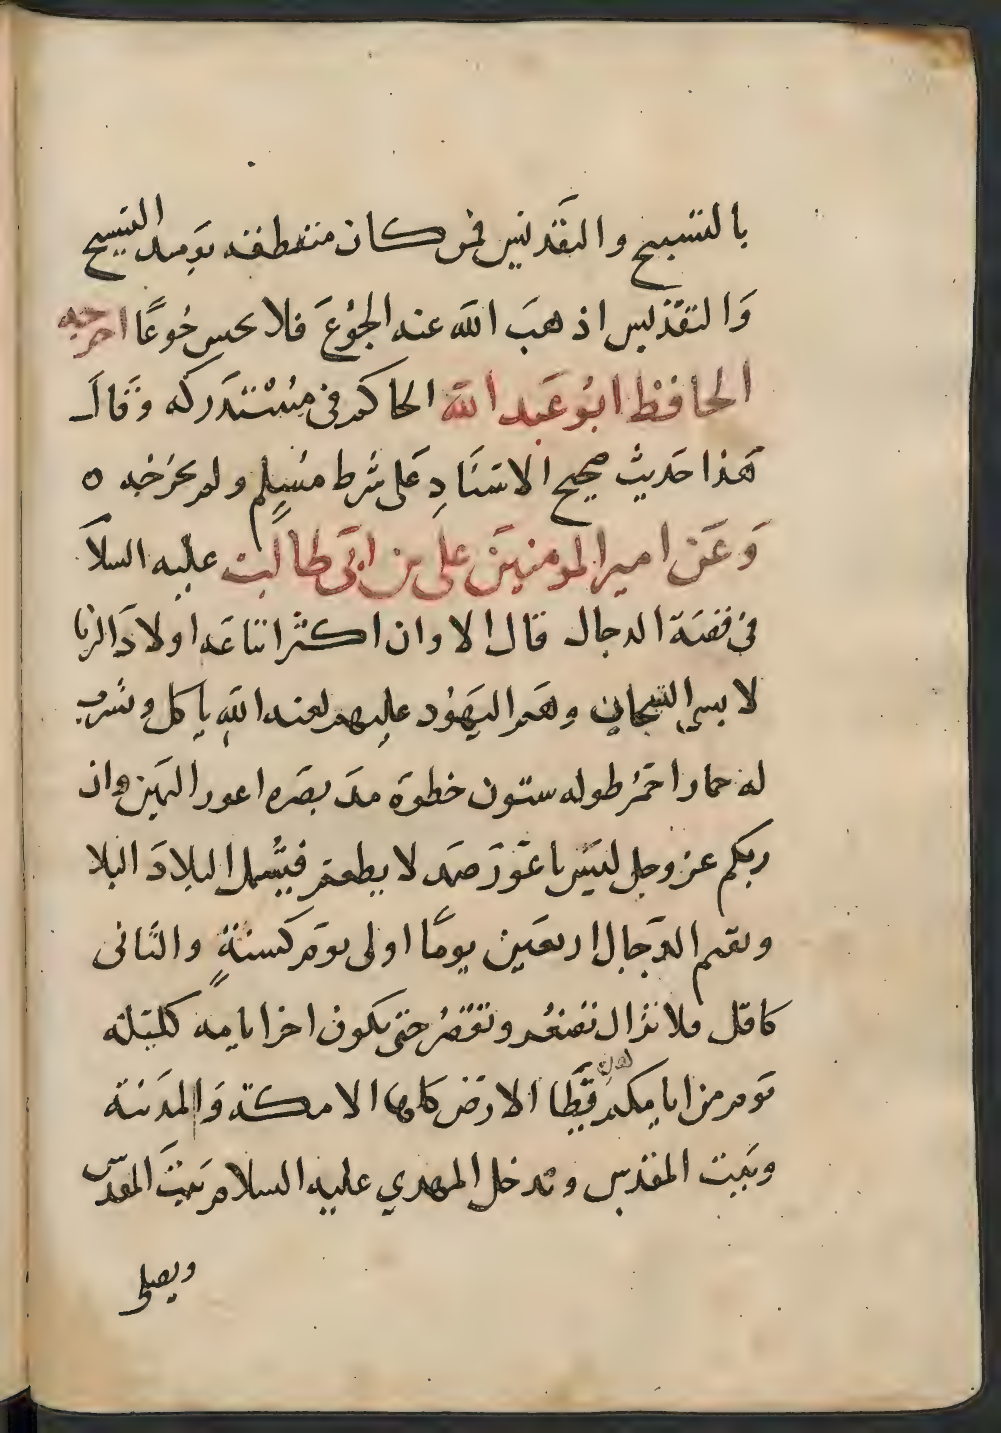 بالتسبيح والتقديس فمن كان منطقه يومئد التسبيح
وَالتقدْيس اذهبَ الله عنه الجُوْعَ فلا يحس جُوعًا اخرجه
الحافظ ابُو عَبد الله الحاكم في مسُتدَركه وقَال
هَذا حَديث صحيح الاسنَادِ عَلى شرط مُسلم ولم يخرجه ٥
وَعَن امير المومنين علي بن ابي طالب عليه السلا
في قصَة الدجال قال الا وان اكثر اتباعَه اولادَ الزنا
لابسي التيجان وهَم اليَهوُد عليهم لعنه الله ياكل ويشرب
له حمار احمَرُ طوله ستون خطوَة مدَ بصَره اعور اليمَين وان
ربكم عز وجل ليَس باعَورَ صمَد لا يطعم فيَشمل البلادَ البلا
ويقيم الدَجال اربعَين يومًا اولى يومَ كسنةٍ والثَانى
كاقل فلا تزال تصَغُر وتقصُر حتى يكون اخر ايامه كليلة
يَوم من ايامكم هذه فيَطَا الارضَ كلها الا مكة وَالمدَينة
وبَيت المقدس ويدخل المهدي عليه السلام بَيتَ المقدس
ويصلى